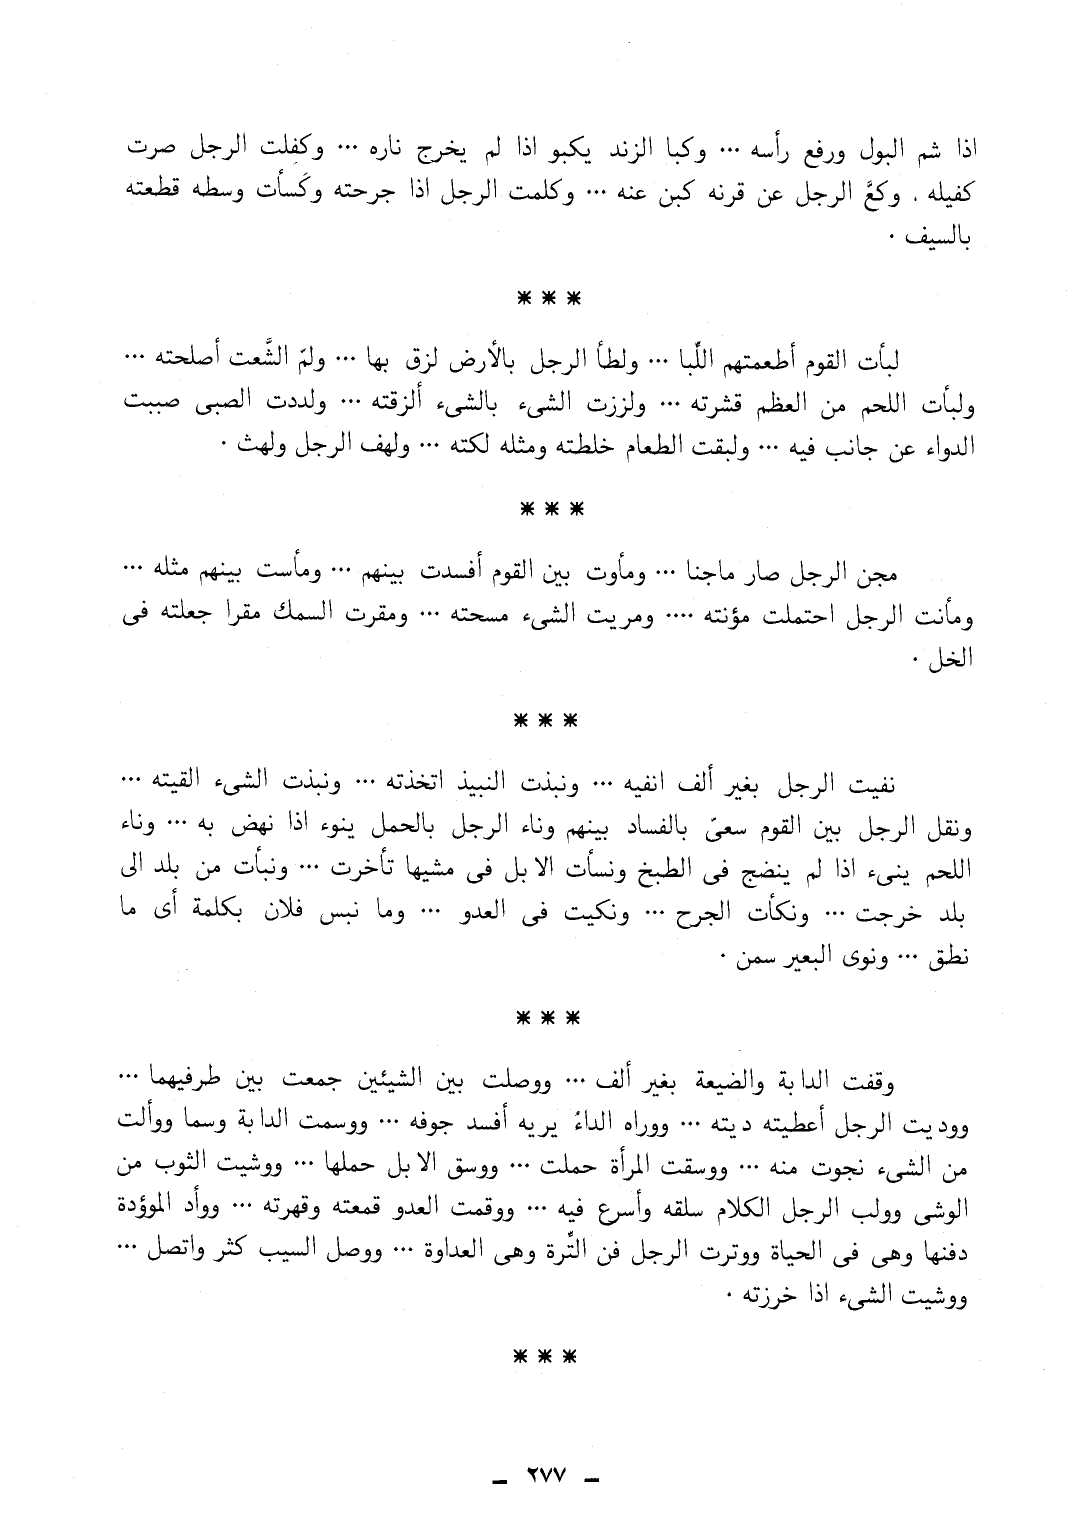 اذا شم البول ورفع رأسه ... وكبا الزند يكبو اذا لم يخرج ناره ... وكفلت الرجل صرت
كفيله . وكعَّ الرجل عن قرنه كبن عنه ... وكلمت الرجل اذا جرحته وكَسأت وسطه قطعته
بالسيف .
* * *
لبأت القوم أطعمتهم اللّبا ... ولطأ الرجل بالأرض لزق بها ... ولمّ الشَّعت أصلحته ...
ولبأت اللحم من العظم قشرته ... ولززت الشىء بالشىء ألزقته ... ولددت الصبى صببت
الدواء عن جانب فيه ... ولبقت الطعام خلطته ومثله لكته ... ولهف الرجل ولهث .
* * *
مجن الرجل صار ماجنا ... ومأوت بين القوم أفسدت بينهم ... ومأست بينهم مثله ...
ومأنت الرجل احتملت مؤنته .... ومريت الشىء مسحته ... ومقرت السمك مقرا جعلته فى
الخل .
* * *
نفيت الرجل بغير ألف انفيه ... ونبذت النبيذ اتخذته ... ونبذت الشىء القيته ...
ونقل الرجل بين القوم سعىّ بالفساد بينهم وناء الرجل بالحمل ينوء اذا نهض به ... وناء
اللحم ينىء اذا لم ينضج فى الطبخ ونسأت الابل فى مشيها تأخرت ... ونبأت من بلد الى
بلد خرجت ... ونكأت الجرح ... ونكيت فى العدو ... وما نبس فلان بكلمة أى ما
نطق ... ونوى البعير سمن .
* * *
وقفت الدابة والضيعة بغير ألف ... ووصلت بين الشيئين جمعت بين طرفيهما ...
ووديت الرجل أعطيته ديته ... ووراه الداءُ يريه أفسد جوفه ... ووسمت الدابة وسما ووألت
من الشىء نجوت منه ... ووسقت المرأة حملت ... ووسق الابل حملها ... ووشيت الثوب من
الوشى وولب الرجل الكلام سلقه وأسرع فيه ... ووقمت العدو قمعته وقهرته ... ووأد الموؤدة
دفنها وهى فى الحياة ووترت الرجل فن التِّرة وهى العداوة ... ووصل السيب كثر واتصل ...
ووشيت الشىء اذا خرزته .
* * *
ـ ٢٧٧ ـ